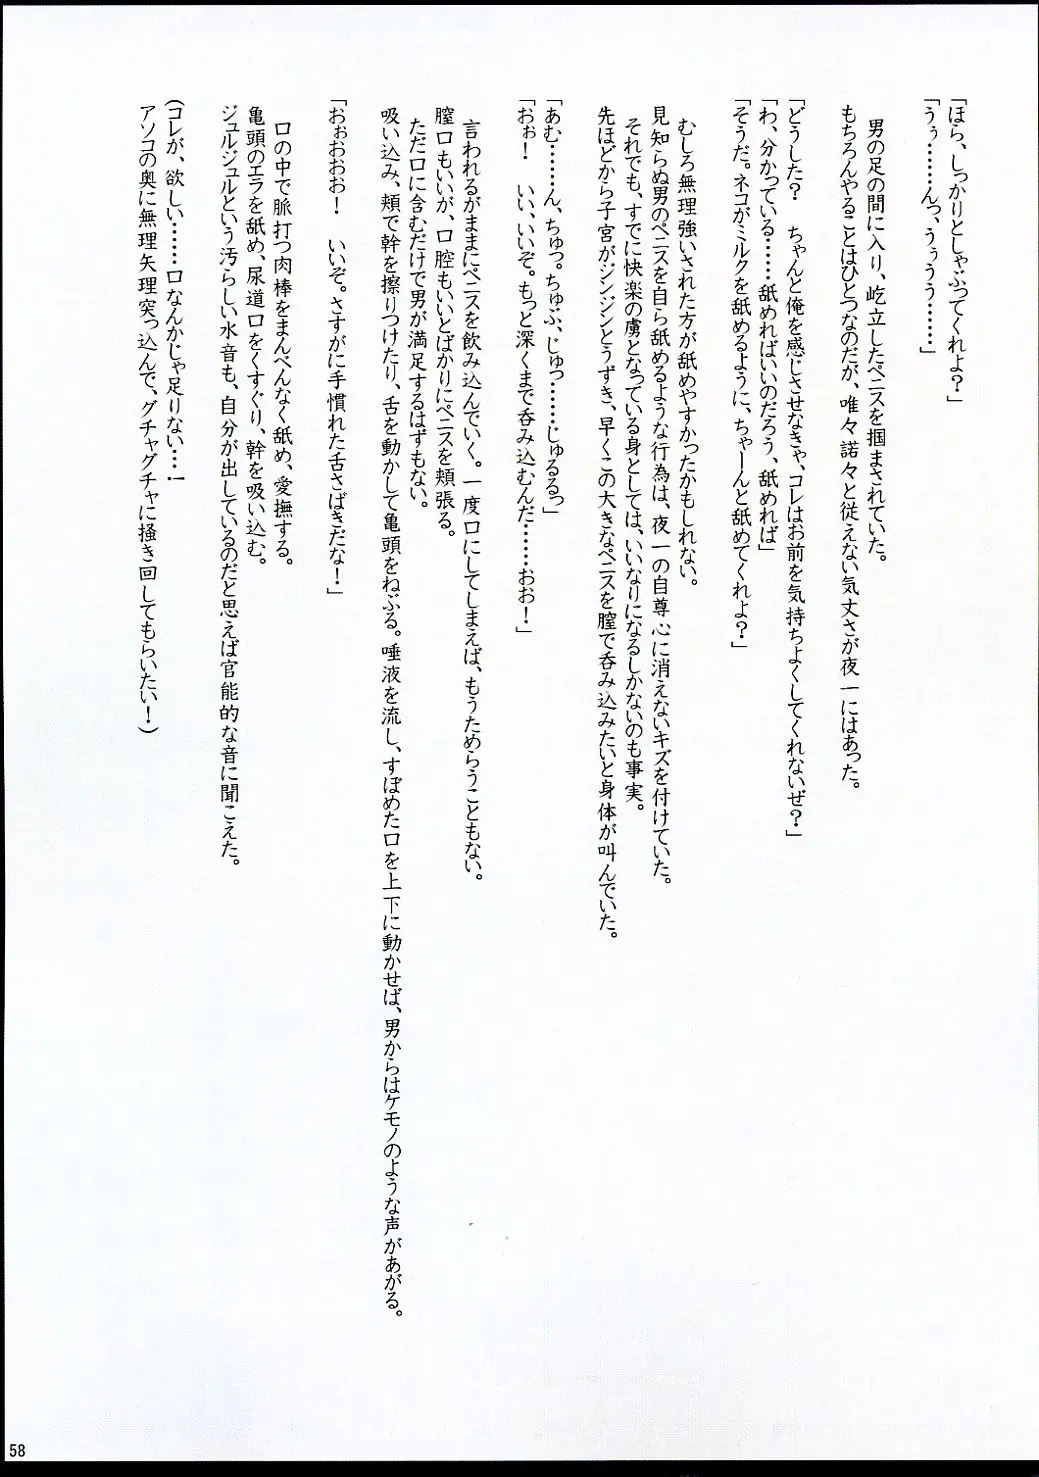 「ほら、しっかりとしゃぶってくれよ？」
「うぅ……んっ、うぅうう……」
男の足の間に入り、屹立したペニスを掴まされていた。
もちろんやることはひとつなのだが、唯々諾々と従えない気丈さが夜一にはあった。
「どうした？　ちゃんと俺を感じさせなきゃ、コレはお前を気持ちよくしてくれないぜ？」
「わ、分かっている……舐めればいいのだろう、舐めれば」
「そうだ。ネコがミルクを舐めるように、ちゃーんと舐めてくれよ？」
むしろ無理強いされた方が舐めやすかったかもしれない。
見知らぬ男のペニスを自ら舐めるような行為は、夜一の自尊心に消えないキズを付けていた。
それでも、すでに快楽の虜となっている身としては、いいなりになるしかないのも事実。
先ほどから子宮がジンジンとうずき、早くこの大きなペニスを膣で呑み込みたいと身体が叫んでいた。
「あむ……ん、ちゅっ。ちゅぶ、じゅっ……じゅるるっ」
「おぉ！　いい、いいぞ。もっと深くまで呑み込むんだ……おお！」
言われるがままにペニスを飲み込んでいく。一度口にしてしまえば、もうためらうこともない。
膣口もいいが、口腔もいいとばかりにペニスを頬張る。
ただ口に含むだけで男が満足するはずもない。
吸い込み、頬で幹を擦りつけたり、舌を動かして亀頭をねぶる。唾液を流し、すぼめた口を上下に動かせば、男からはケモノのような声があがる。
「おぉおおお！　いいぞ。さすがに手慣れた舌さばきだな！」
口の中で脈打つ肉棒をまんべんなく舐め、愛撫する。
亀頭のエラを舐め、尿道口をくすぐり、幹を吸い込む。
ジュルジュルという汚らしい水音も、自分が出しているのだと思えば官能的な音に聞こえた。
（コレが、欲しい……口なんかじゃ足りない…！
アソコの奥に無理矢理突っ込んで、グチャグチャに掻き回してもらいたい！）
58